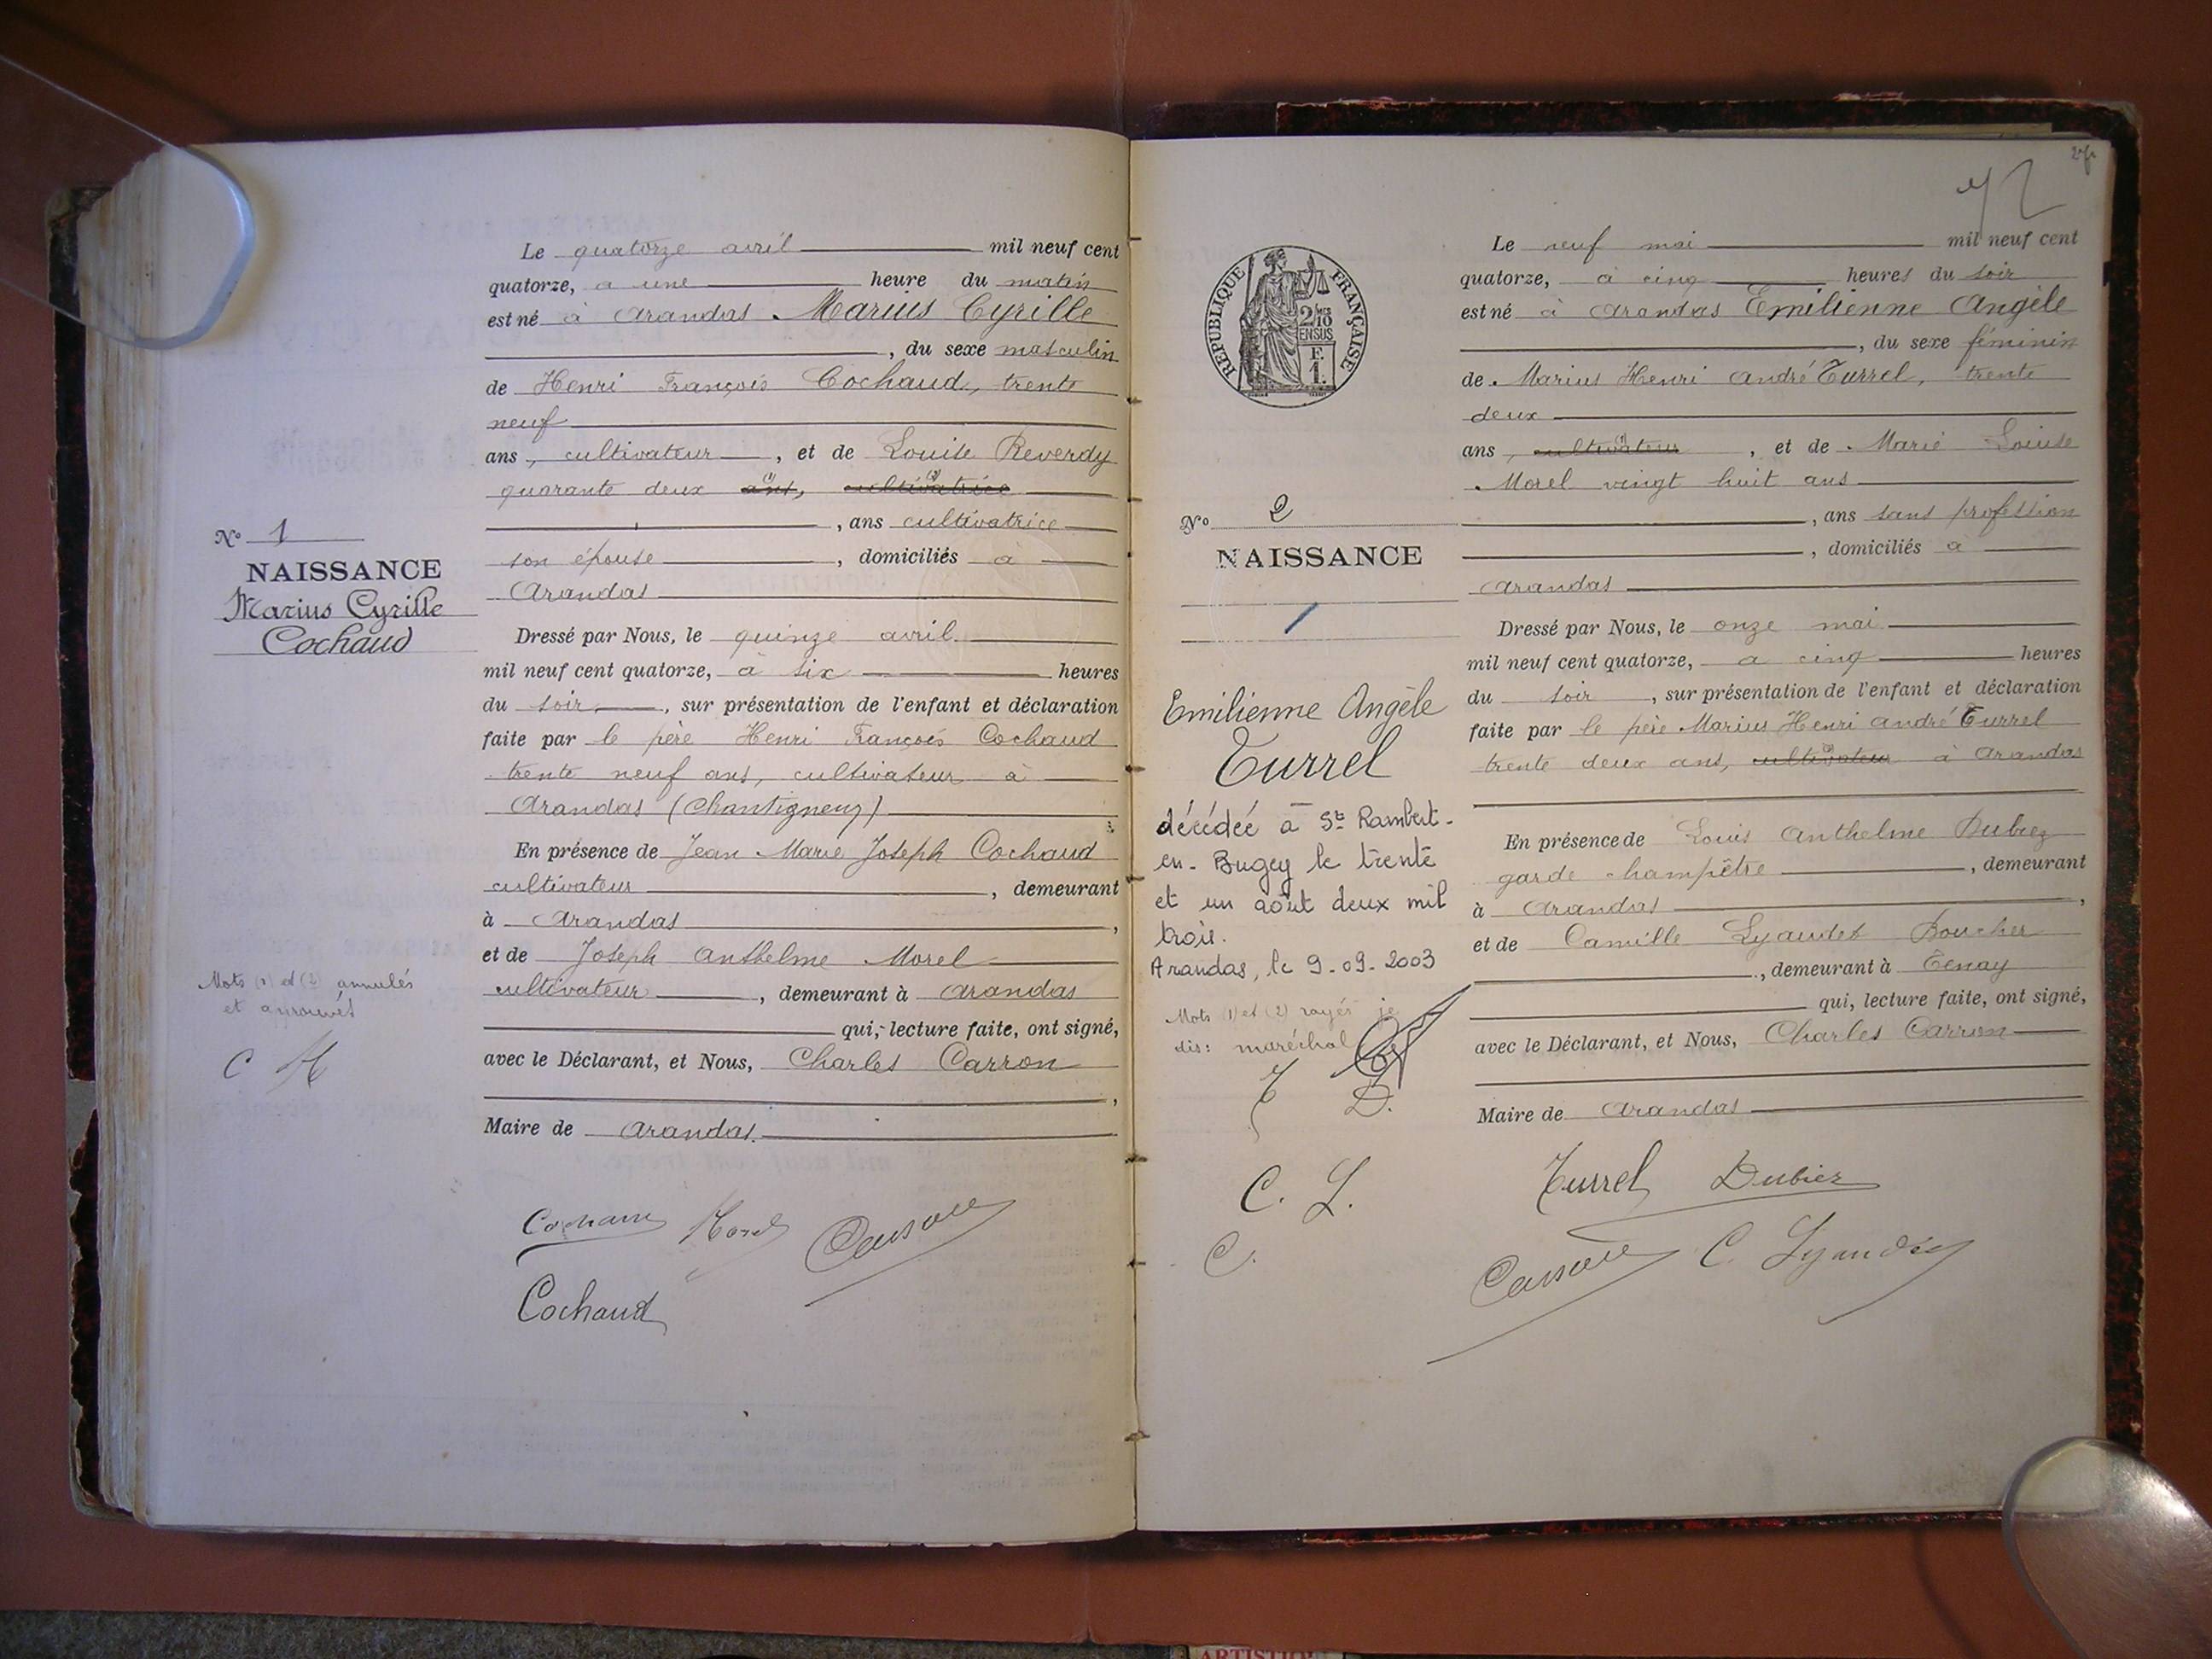 Le quatorze avril mil neuf cent
quatorze, à une heure du matin
est né à Arandas Marius Cyrille
, du sexe masculin
de Henri François Cochaud, trente
neuf
ans, cultivateur, et de Louise Reverdy
quarante deux ans, (1) cultivatrice (2)
, ans cultivatrice
son épouse, domiciliés à
Arandas
Dressé par Nous, le quinze avril
mil neuf cent quatorze, à six heures
du soir, sur présentation de l'enfant et déclaration
faite par le père Henri François Cochaud
trente neuf ans, cultivateur à
Arandas (Chantigneux)
En présence de Jean Marie Joseph Cochaud
cultivateur, demeurant
à Arandas,
et de Joseph Anthelme Morel
cultivateur, demeurant à Arandas
qui, lecture faite, ont signé,
avec le Déclarant, et Nous, Charles Carron
,
Maire de Arandas.
Nº 1
NAISSANCE
Marius Cyrille
Cochaud
Mots (1) et (2) annulés
et
C M
Cochaud Morel
Cochaud
72
RÉPUBLIQUE FRANÇAISE
2/10
EN SUS
F.
1.
Nº 2
NAISSANCE
Emilienne Angèle
Turrel
décédée à St Rambert-
en-Bugey le trente
et un août deux mil
trois.
Arandas, le 9-09-2003
Mots (1) et (2) rayés je
dis: maréchal
T D.
C. L.
C.
Le neuf mai mil neuf cent
quatorze, à cinq heures du soir
est né à Arandas Emilienne Angèle
, du sexe féminin
de Marius Henri André Turrel, trente
deux
ans, cultivateur (1), et de Marie Louise
Morel vingt huit ans
, ans sans profession
, domiciliés à
Arandas
Dressé par Nous, le onze mai
mil neuf cent quatorze, à cinq heures
du soir, sur présentation de l'enfant et déclaration
faite par le père Marius Henri André Turrel
trente deux ans, cultivateur (2) à Arandas
En présence de Louis Anthelme Dubiez
garde champêtre, demeurant
à Arandas,
et de Camille Lyaudet Boucher
, demeurant à Tenay
qui, lecture faite, ont signé,
avec le Déclarant, et Nous, Charles Carron
Maire de Arandas
Turrel Dubiez
C. Lyaudet